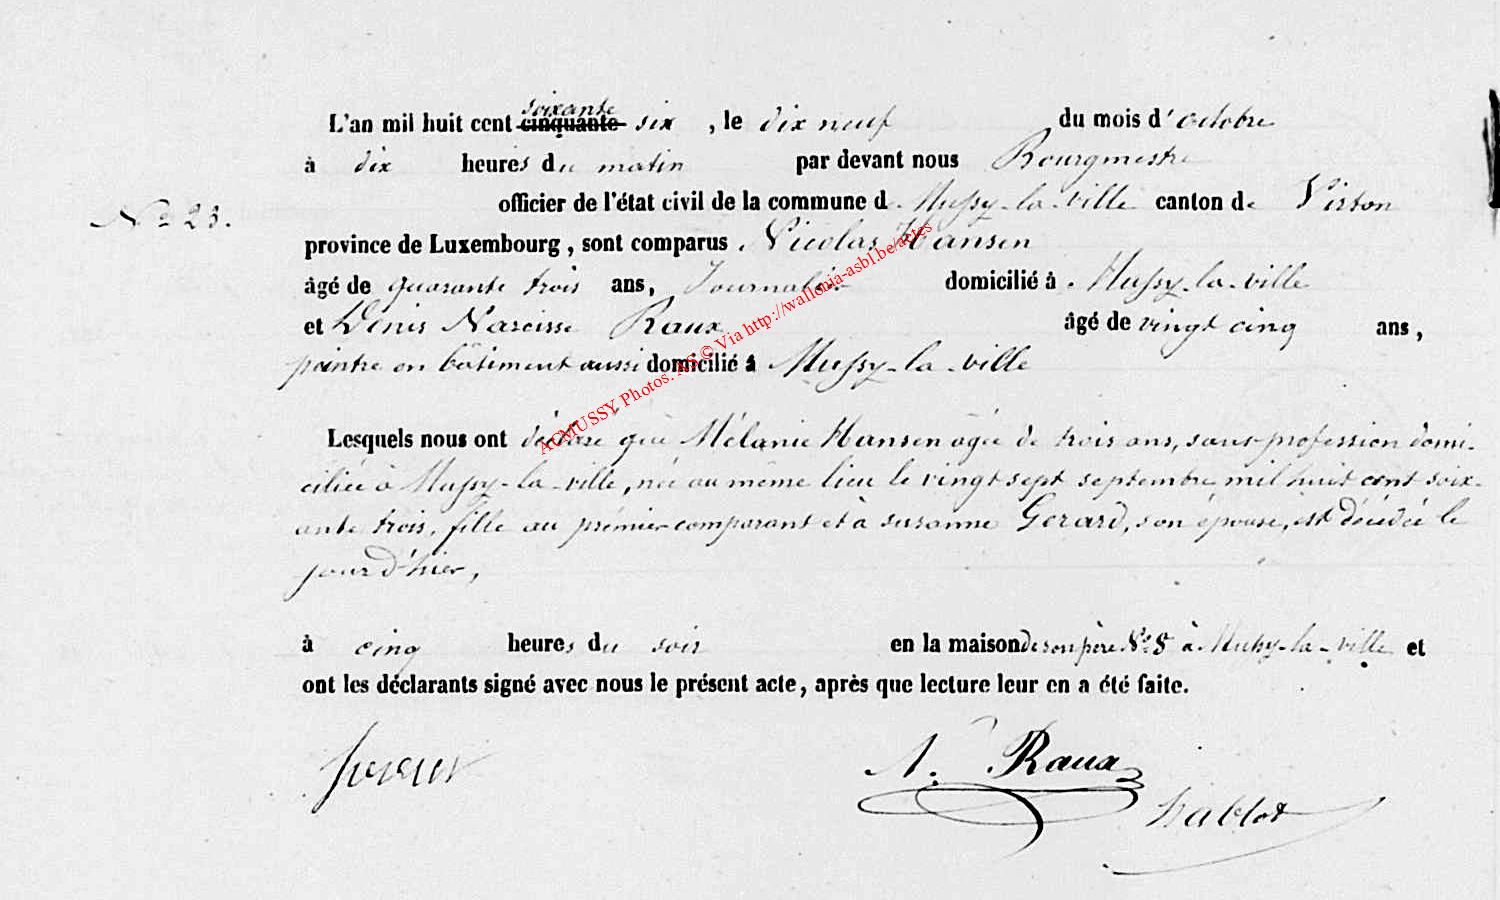 L'an mil huit cent soixante cinquante six, le dix neuf du mois d'octobre
à dix heures du matin par devant nous Bourgmestre
officier de l'état civil de la commune de Mussy-la-ville canton de Virton
No 23.
province de Luxembourg, sont comparus Nicolas Hansen
âgé de quarante trois ans, Journalier domicilié à Mussy-la-ville
et Denis Narcisse Raux âgé de vingt cinq ans,
peintre en bâtiment aussi domicilié à Mussy-la-ville
Lesquels nous ont déclaré que Mélanie Hansen agée de trois ans, sans profession domi-
ciliée à Mussy-la-ville, née au même lieu le vingt sept septembre mil huit cent soix-
ante trois, fille au prémier comparant et à Susanne Gerard, son épouse, est décédée le
jour d'hier,
à cinq heures du soir en la maison de son père No 8 à Mussy-la-ville et
ont les déclarants signé avec nous le présent acte, après que lecture leur en a été faite.
N. Raux
Hablot
ACMUSSY Photos: AS © Via http://wallonia-asbl.be/actes